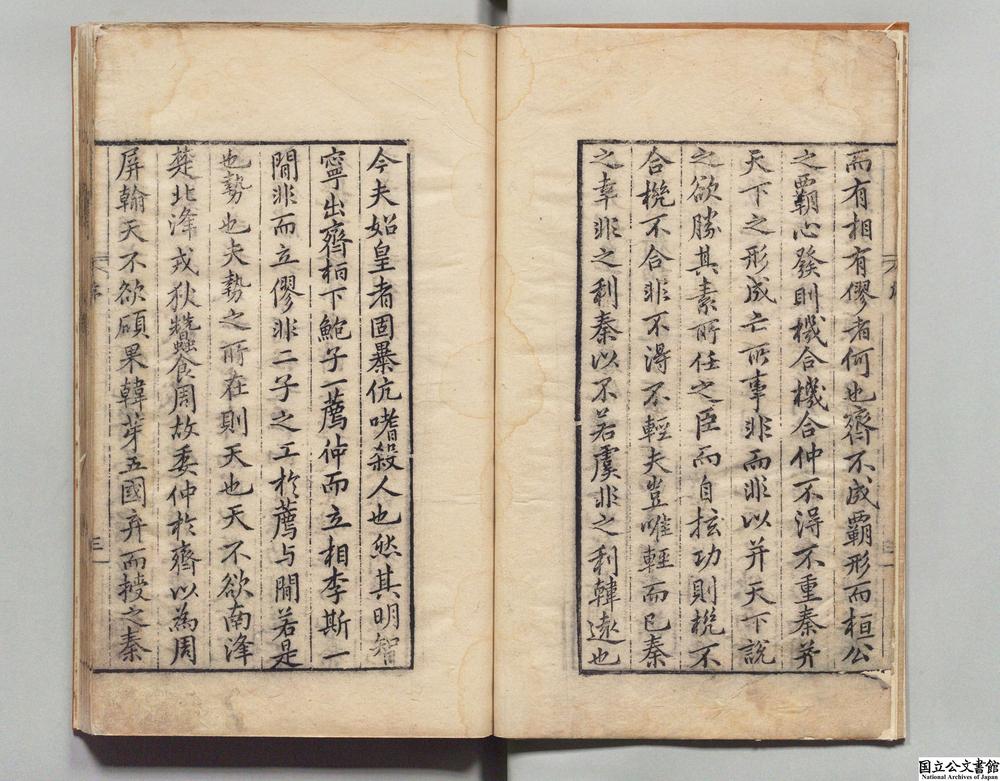 而有相有僇者何也齊不成霸形而桓公
之霸心發則機合機合仲不得不重秦并
天下之形成亡所事非而非以并天下說
之欲勝其素所任之臣而自炫功則機不
合機不合非不得不輕夫豈唯輕而已秦
之幸非之利秦以不若虞非之利韓遠也
今夫始皇者固暴伉嗜殺人也然其明智
寧出齊桓下鮑子一薦仲而立相李斯一
間非而立僇非二子之工於薦与間若是
也勢也夫勢之所在則天也天不欲南浲
楚北浲戎狄蠶食周故委仲於齊以為周
屏翰天不欲碩果韓芽五國弃而授之秦
序
三
国立公文書館
National Archives of Japan